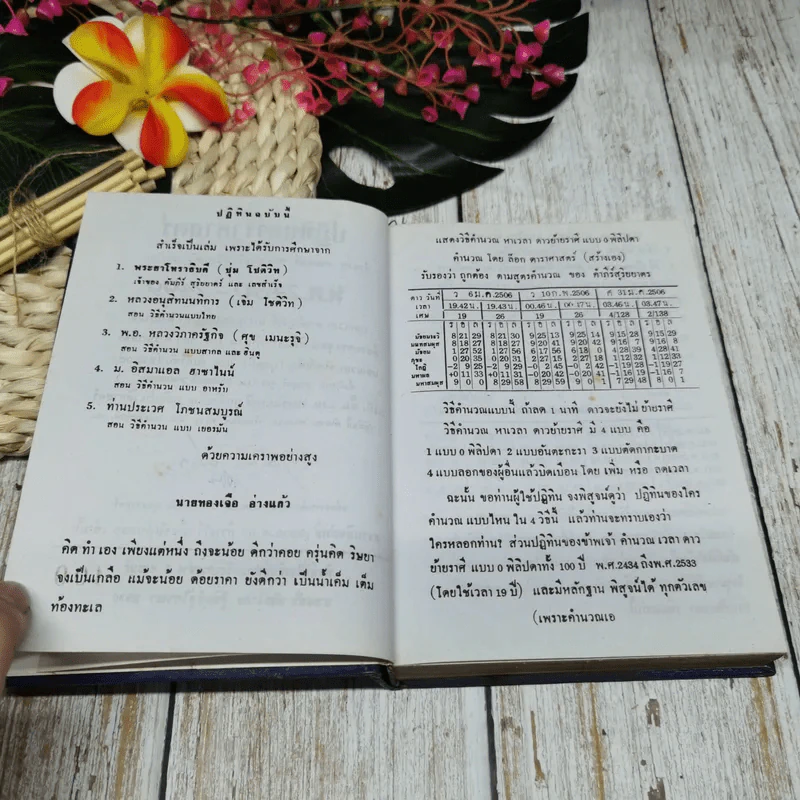 ปฏิทินฉบับนี้
สำเร็จเป็นเล่ม เพราะได้รับการศึกษาจาก
1. พระยาโหราธิบดี (ชุ่ม โชติวิท)
เจ้าของ คัมภีร์ สุริยยาตร์ และ เลขสำเร็จ
2. หลวงอนุสัทนนทิการ (เจิม โชติวิท)
สอน วิธีคำนวนแบบไทย
3. พ.อ. หลวงวิภาครัฐกิจ (ศุข เมนะรุจิ)
สอน วิธีคำนวน แบบสากล และ ฮินดู
4. ม. อิสมาแอล ฮาซาไนน์
สอน วิธีคำนวน แบบ อาหรับ
5. ท่านประเวศ โภชนสมบูรณ์
สอน วิธีคำนวน แบบ เยอรมัน
ด้วยความเคารพอย่างสูง
นายทองเจือ อ่างแก้ว
คิด ทำ เอง เพียงแต่หนึ่ง ถึงจะน้อย ดีกว่าคอย ครุ่นคิด ริษยา
จงเป็นเกลือ แม้จะน้อย ด้อยราคา ยังดีกว่า เป็นน้ำเค็ม เต็ม
ท้องทะเล
แสดงวิธีคำนวณ หาเวลา ดาวย้ายราศี แบบ 0 พิลิปดา
คำนวณ โดย ล๊อก ดาราศาสตร์ (สร้างเอง)
รับรองว่า ถูกต้อง ตามสูตรคำนวณ ของ คำภีร์สุริยยาตร
ดาว วันที่ ว 6 ม.ค.2506 ว 10 ก.พ.2506 ศ 31 ม.ค.2506
เวลา 19.42 น. 19.43 น. 00.46 น. 00.47 น. 03.46 น. 03.47 น.
เศษ 19 26 19 26 4/128 2/138
ร อ ล ร อ ล ร อ ล ร อ ล ร อ ล ร อ ล
8 21 29 8 21 30 9 25 13 9 25 14 9 15 28 9 15 29
มัธยม 1 27 52 1 27 56 6 17 56 6 18 0 4 28 39 4 28 41
วิธีคำนวณแบบนี้ ถ้าลด 1 นาที ดาวจะยังไม่ ย้ายราศี
วิธีคำนวณ หาเวลา ดาวย้ายราศี มี 4 แบบ คือ
1 แบบ 0 พิลิปดา 2 แบบอันตะกะรา 3 แบบตัดกากะบาด
4 แบบลอกของผู้อื่นแล้วบิดเบือน โดย เพิ่ม หรือ ลดเวลา
ฉะนั้น ขอท่านผู้ใช้ปฏิทิน จงพิสูจน์ดูว่า ปฏิทินของใคร
คำนวณ แบบไหน ใน 4 วิธีนี้ แล้วท่านจะทราบเองว่า
ใครหลอกท่าน? ส่วนปฏิทินของข้าพเจ้า คำนวณ เวลา ดาว
ย้ายราศี แบบ 0 พิลิปดาทั้ง 100 ปี พ.ศ.2434 ถึงพ.ศ.2533
(โดยใช้เวลา 19 ปี) และมีหลักฐาน พิสูจน์ได้ ทุกตัวเลข
(เพราะคำนวณเอ